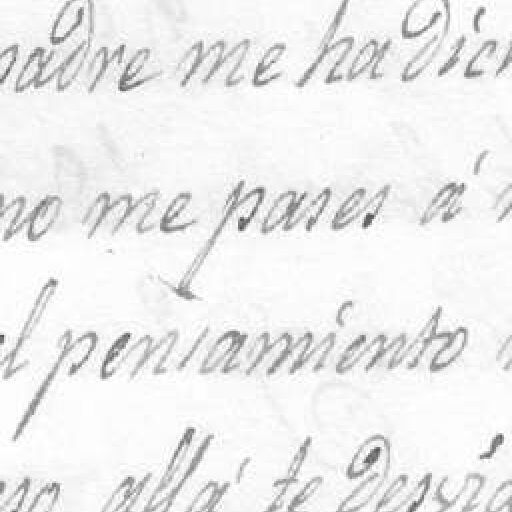 padre me ha dich
no me pases á
el pensiamiento
eso allá te desvia